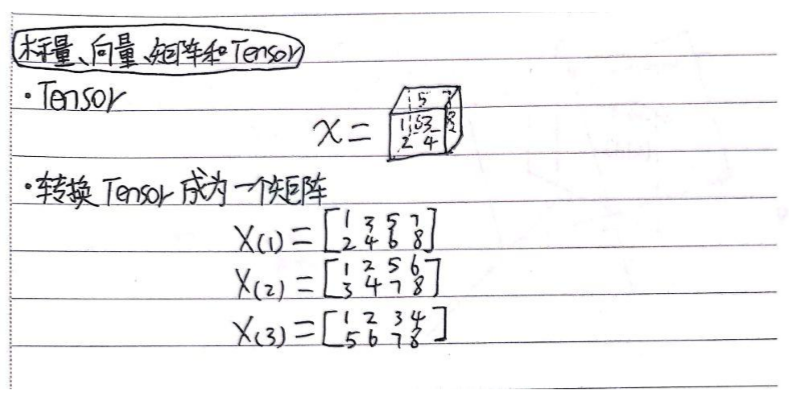 标量、向量、矩阵和Tensor
·Tensor
5 7
X = 1 6 3 8
2 4
·转换Tensor成为一个矩阵
X(1) = [1 3 5 7
2 4 6 8]
X(2) = [1 2 5 6
3 4 7 8]
X(3) = [1 2 3 4
5 6 7 8]